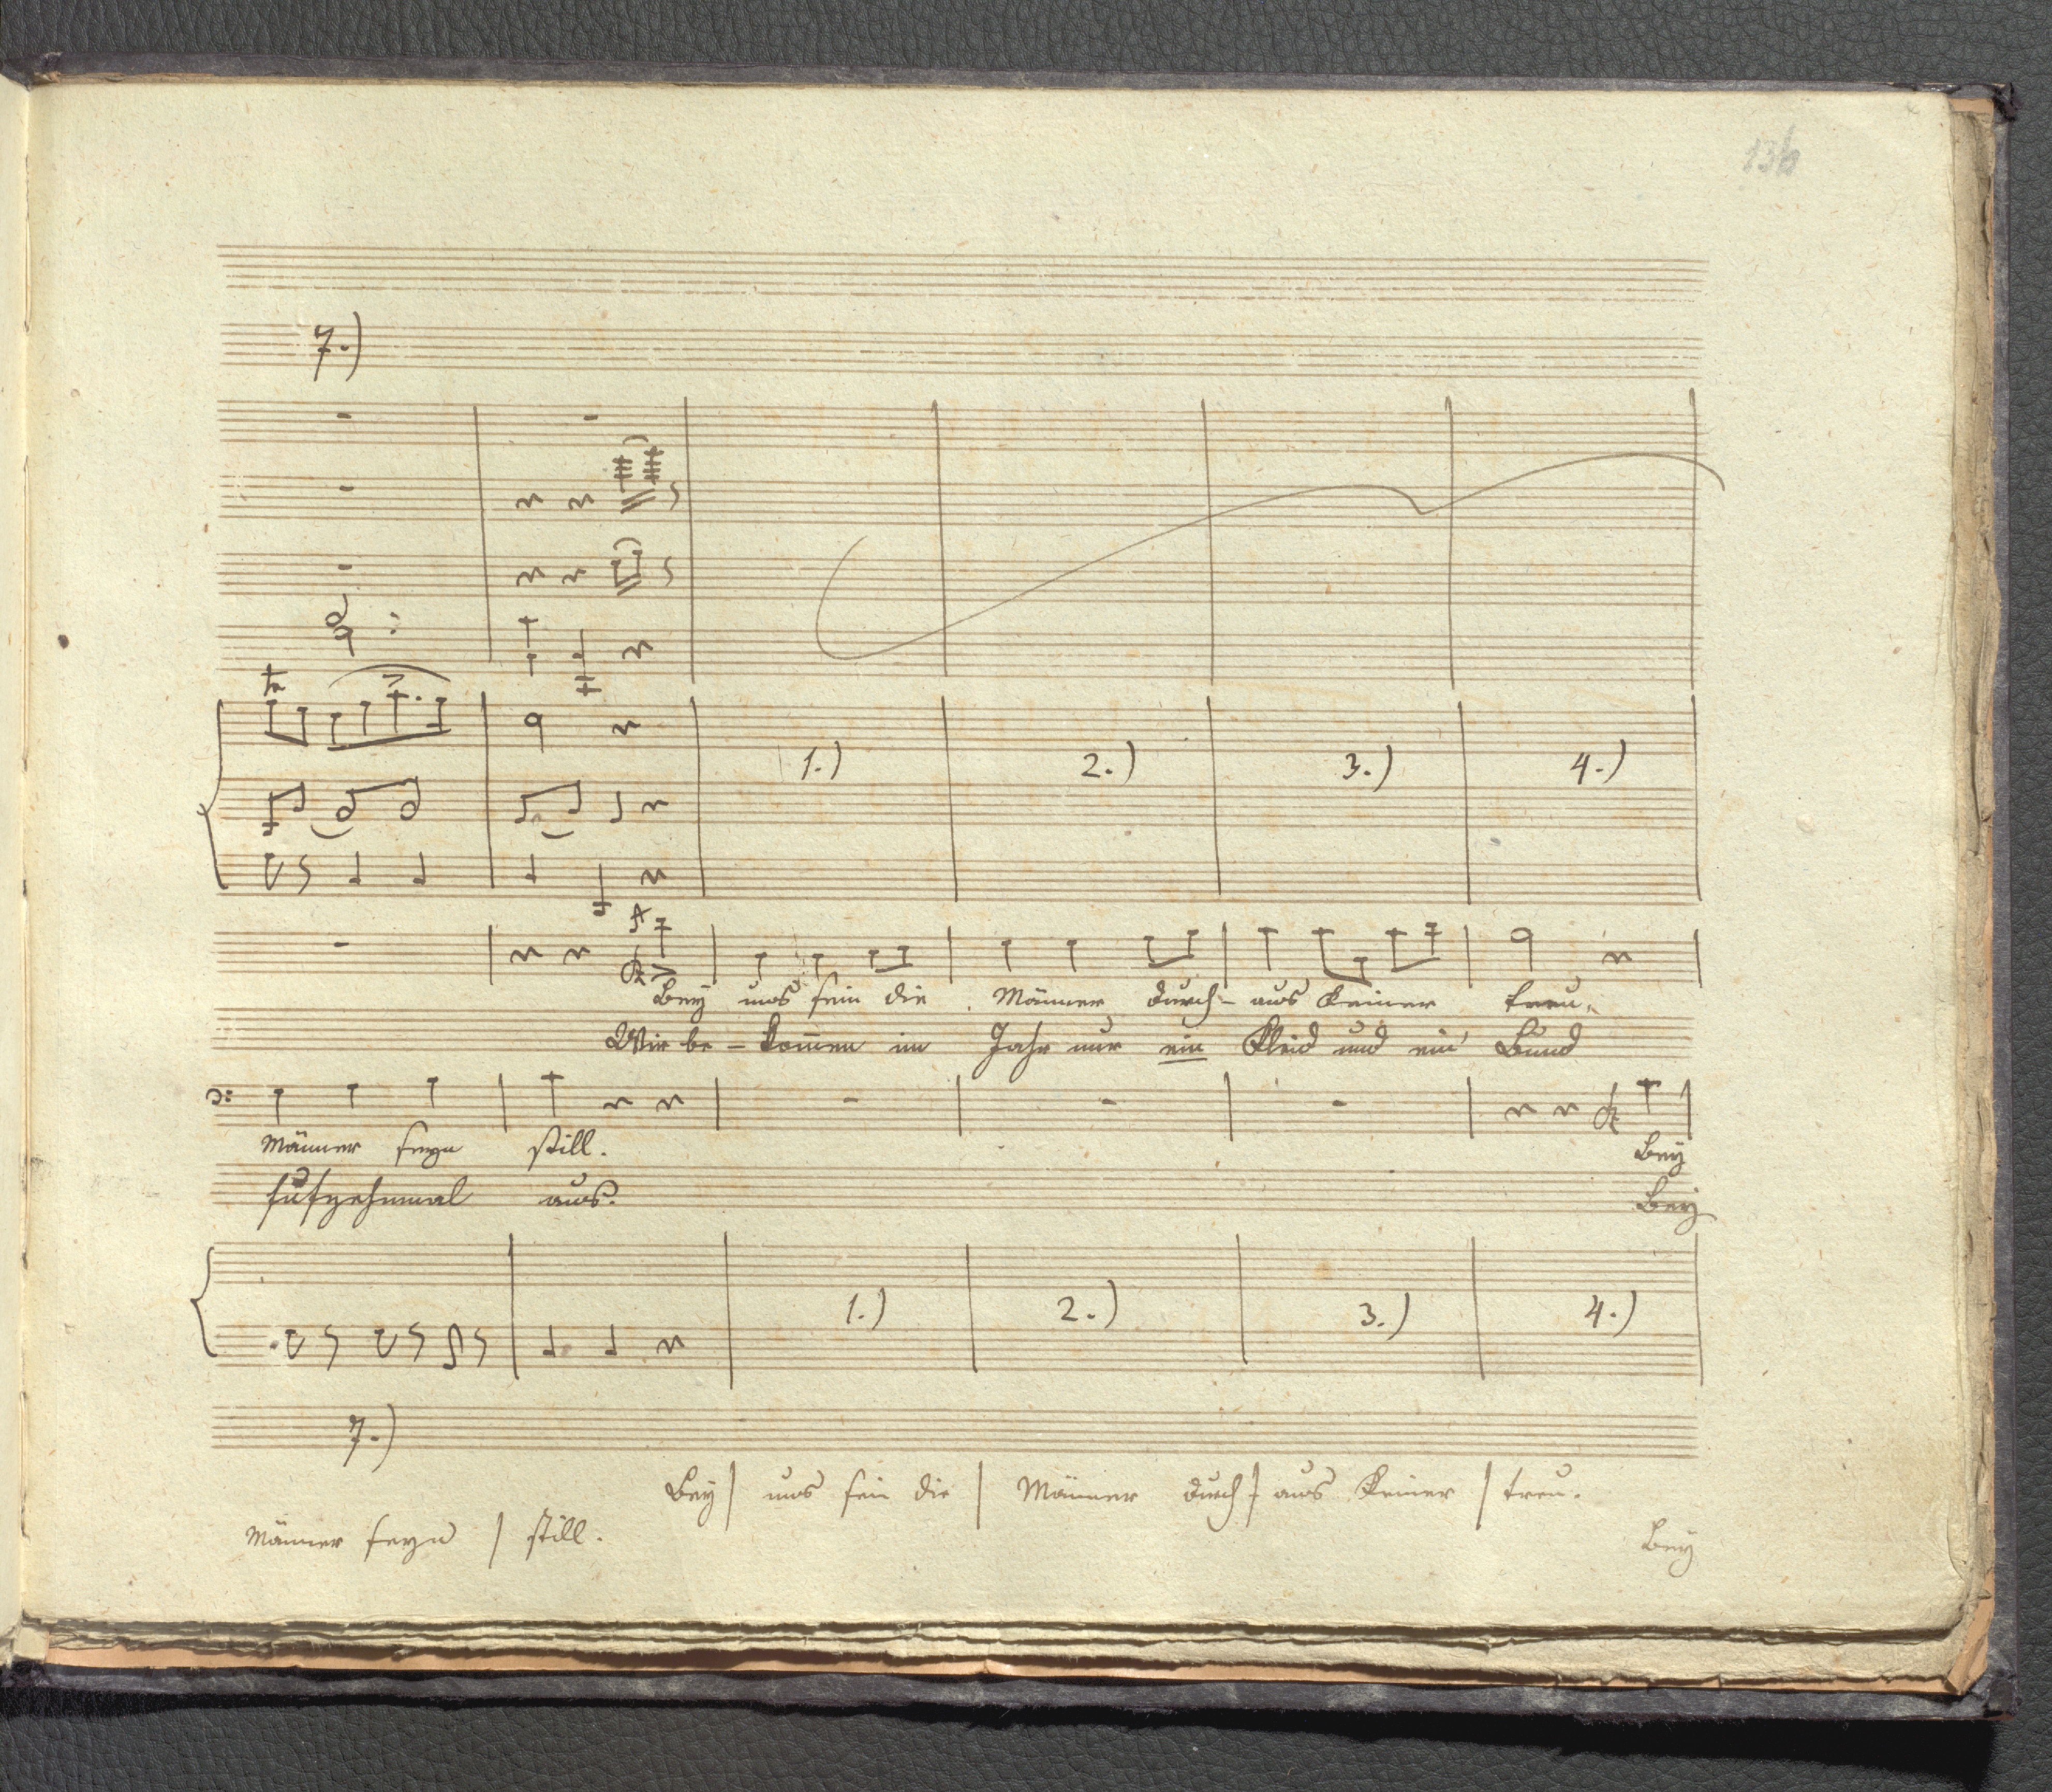 136
7.)
tr
1.) 2.) 3.) 4.)
Bey uns sein die Männer durch- aus keiner treu.
Wir be- kom̄en im Jahr nur ein Kleid und ein' Bund
Männer seyn still. Bey
fufzehnmal aus. Bey
1.) 2.) 3.) 4.)
7.)
Bey | uns sein die | Männer durch- | aus keiner | treu.
Männer seyn | still. Bey